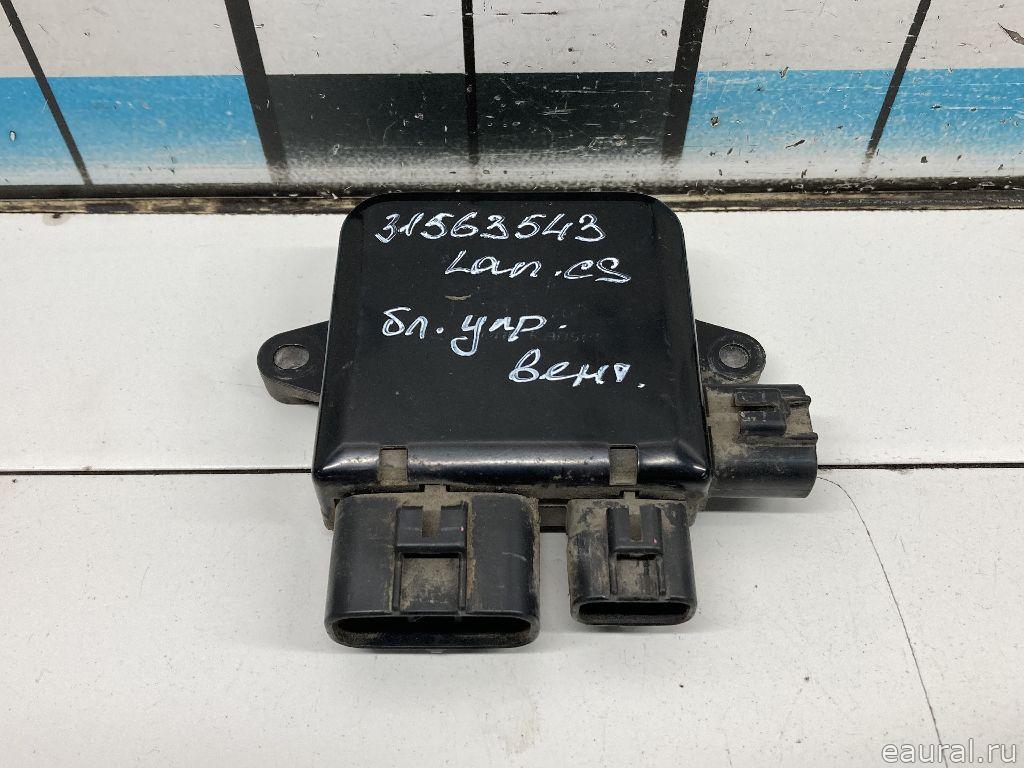 31563543
Lan.CS
бл. упр.
вент.
eaural.ru